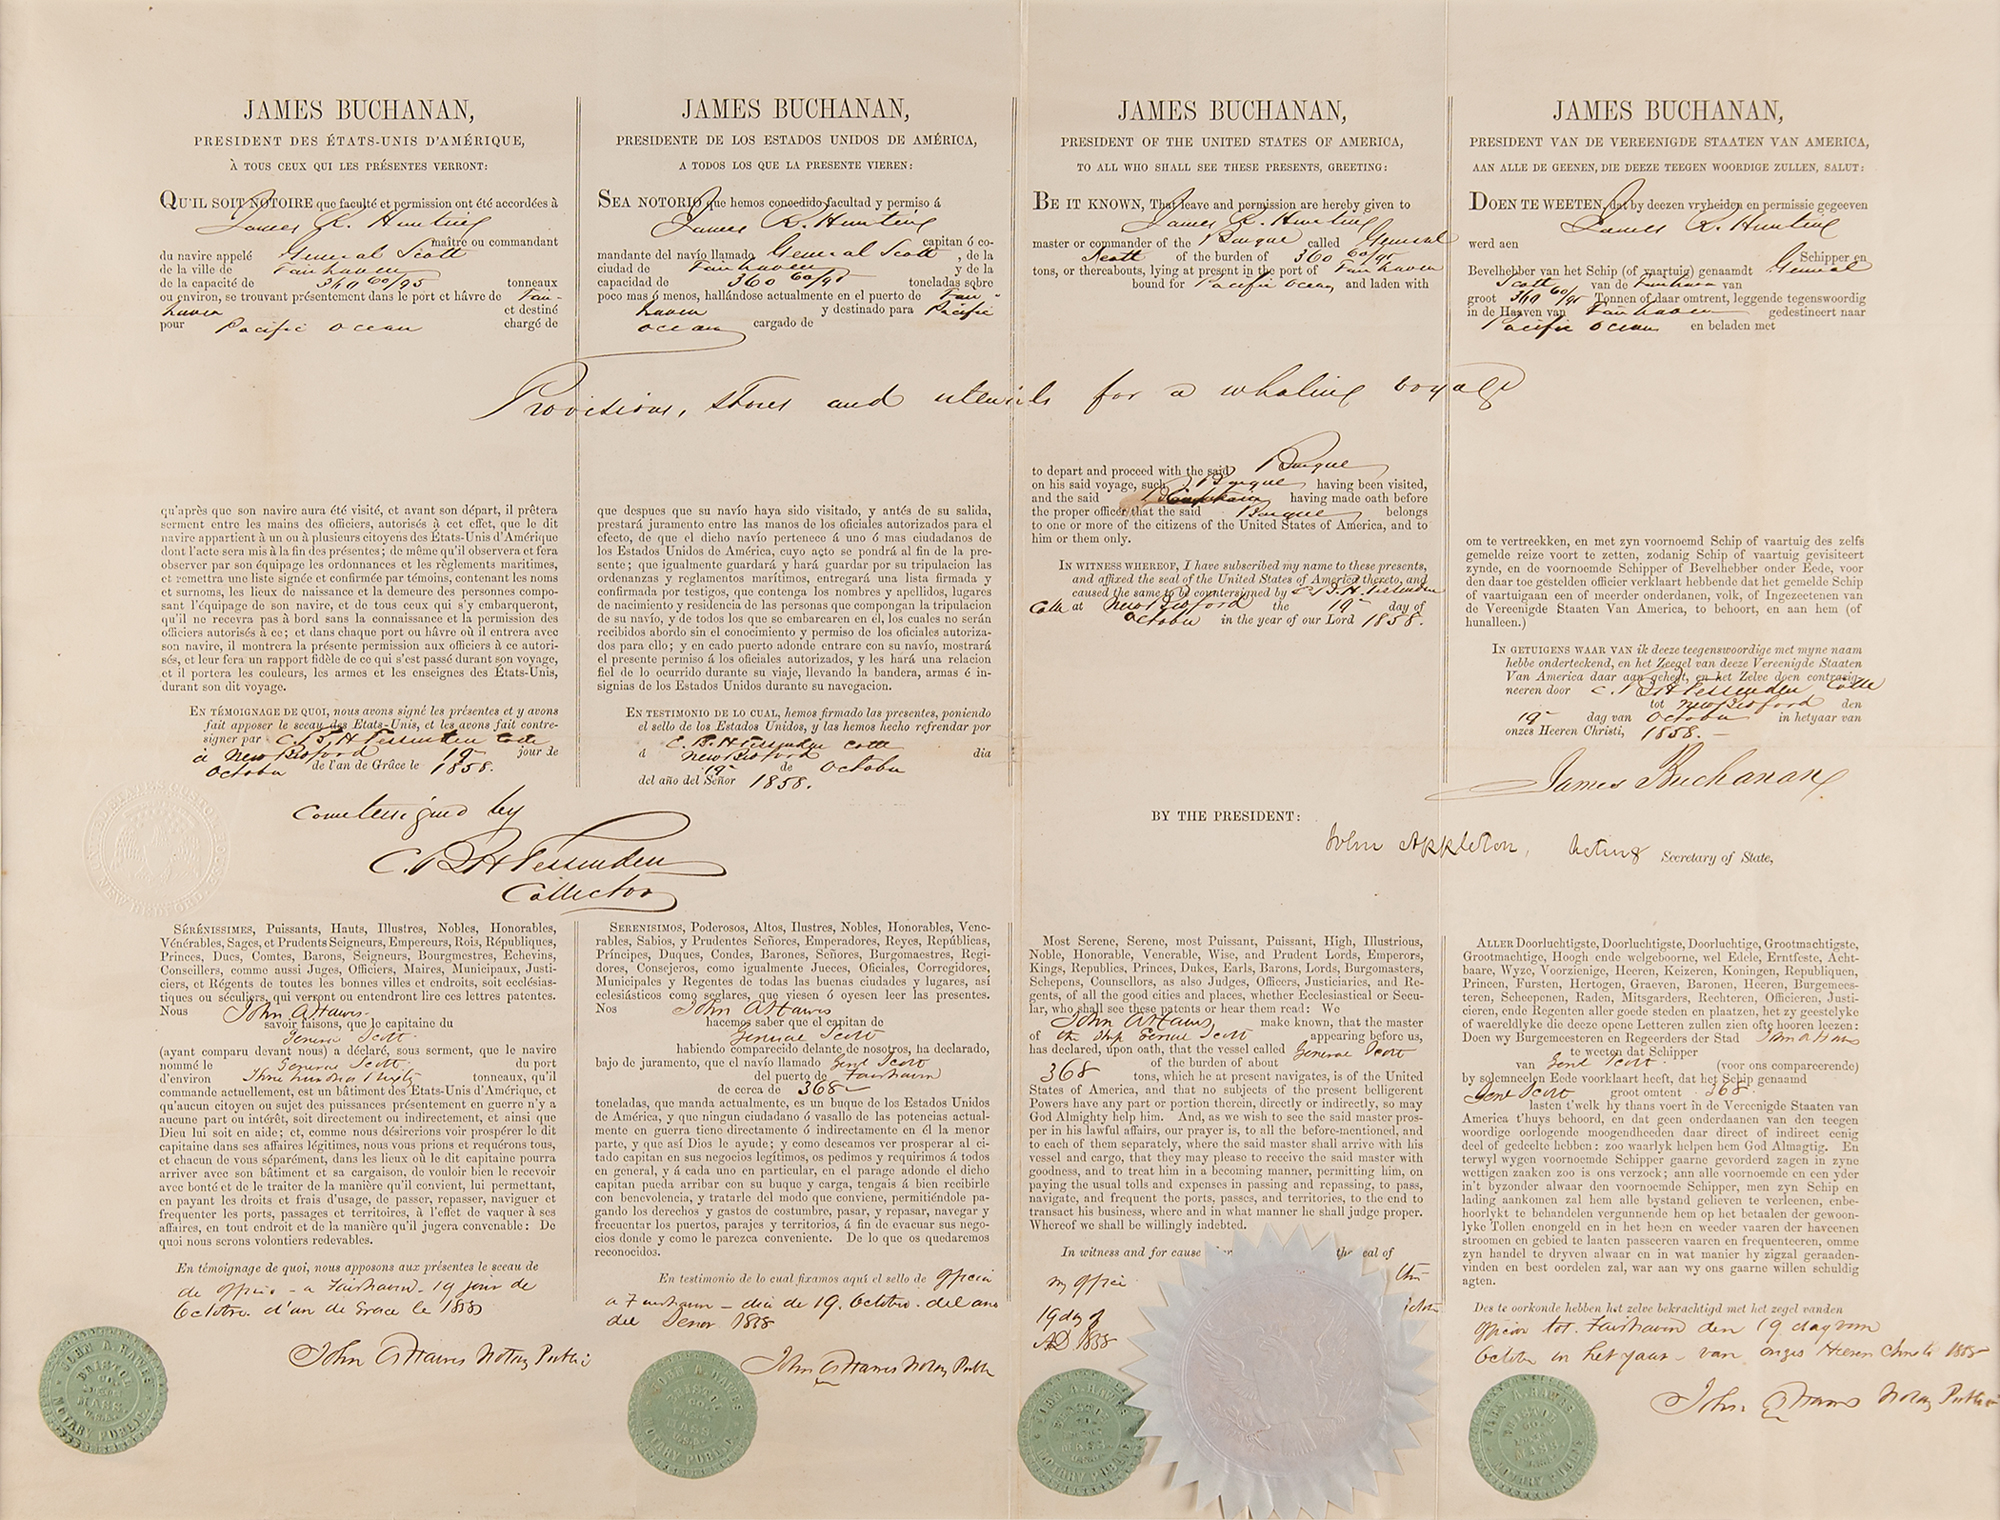 JAMES BUCHANAN,
PRESIDENT DES ÉTATS-UNIS D'AMÉRIQUE,
À TOUS CEUX QUI LES PRÉSENTES VERRONT:
QU'IL SOIT NOTOIRE que faculté et permission ont été accordées à
James R. Hunting
maître ou commandant
du navire appelé General Scott
de la ville de Fairhaven
de la capacité de 360 60/95 tonneaux
ou environ, se trouvant présentement dans le port et hâvre de Fair-
haven et destiné
pour Pacific Ocean chargé de
JAMES BUCHANAN,
PRESIDENTE DE LOS ESTADOS UNIDOS DE AMÉRICA,
A TODOS LOS QUE LA PRESENTE VIEREN:
SEA NOTORIO que hemos concedido facultad y permiso á
James R. Hunting
capitan ó co-
mandante del navío llamado General Scott, de la
ciudad de Fairhaven y de la
capacidad de 360 60/95 toneladas sobre
poco mas ó menos, hallándose actualmente en el puerto de Fair-
haven y destinado para Pacific
Ocean cargado de
JAMES BUCHANAN,
PRESIDENT OF THE UNITED STATES OF AMERICA,
TO ALL WHO SHALL SEE THESE PRESENTS, GREETING:
BE IT KNOWN, That leave and permission are hereby given to
James R. Hunting
master or commander of the Barque called General
Scott of the burden of 360 60/95
tons, or thereabouts, lying at present in the port of Fairhaven
bound for Pacific Ocean and laden with
JAMES BUCHANAN,
PRESIDENT VAN DE VEREENIGDE STAATEN VAN AMERICA,
AAN ALLE DE GEENEN, DIE DEEZE TEEGEN WOORDIGE ZULLEN, SALUT:
DOEN TE WEETEN, dat by deezen vryheiden en permissie gegeeven
James R. Hunting
werd aen
Schipper en
Bevelhebber van het Schip (of vaartuig) genaamdt General
Scott van de Fairhaven van
groot 360 60/95 Tonnen of daar omtrent, leggende tegenswoordig
in de Haaven van Fairhaven gedestineert naar
Pacific Ocean en beladen met
Provisions, stores and utensils for a whaling voyage
qu'après que son navire aura été visité, et avant son départ, il prêtera
serment entre les mains des officiers, autorisés à cet effet, que le dit
navire appartient à un ou à plusieurs citoyens des États-Unis d'Amérique
dont l'acte sera mis à la fin des présentes; de même qu'il observera et fera
observer par son équipage les ordonnances et les règlements maritimes,
et remettra une liste signée et confirmée par témoins, contenant les noms
et surnoms, les lieux de naissance et la demeure des personnes compo-
sant l'équipage de son navire, et de tous ceux qui s'y embarqueront,
qu'il ne recevra pas à bord sans la connaissance et la permission des
officiers autorisés à ce; et dans chaque port ou hâvre où il entrera avec
son navire, il montrera la présente permission aux officiers à ce autori-
sés, et leur fera un rapport fidèle de ce qui s'est passé durant son voyage,
et il portera les couleurs, les armes et les enseignes des États-Unis,
durant son dit voyage.
EN TÉMOIGNAGE DE QUOI, nous avons signé les présentes et y avons
fait apposer le sceau des Etats-Unis, et les avons fait contre-
signer par C. B. H Fessenden Colle
à New Bedford 19 jour de
October de l'an de Grâce le 1858.
que despues que su navío haya sido visitado, y antés de su salida,
prestará juramento entre las manos de los oficiales autorizados para el
efecto, de que el dicho navío pertenece á uno ó mas ciudadanos de
los Estados Unidos de América, cuyo acto se pondrá al fin de la pre-
sente; que igualmente guardará y hará guardar por su tripulacion las
ordenanzas y reglamentos marítimos, entregará una lista firmada y
confirmada por testigos, que contenga los nombres y apellidos, lugares
de nacimiento y residencia de las personas que compongan la tripulacion
de su navío, y de todos los que se embarcaren en él, los cuales no serán
recibidos abordo sin el conocimiento y permiso de los oficiales autoriza-
dos para ello; y en cado puerto adonde entrare con su navío, mostrará
el presente permiso á los oficiales autorizados, y les hará una relacion
fiel de lo ocurrido durante su viaje, llevando la bandera, armas é in-
signias de los Estados Unidos durante su navegacion.
EN TESTIMONIO DE LO CUAL, hemos firmado las presentes, poniendo
el sello de los Estados Unidos, y las hemos hecho refrendar por
C. B. H Fessenden Colle
á New Bedford dia
19 de October
del año del Señor 1858.
to depart and proceed with the said Barque
on his said voyage, such Barque having been visited,
and the said having made oath before
the proper officer, that the said Barque belongs
to one or more of the citizens of the United States of America, and to
him or them only.
IN WITNESS WHEREOF, I have subscribed my name to these presents,
and affixed the seal of the United States of America thereto, and
caused the same to be countersigned by C. B. H. Fessenden
Colle at New Bedford the 19 day of
October in the year of our Lord 1858.
om te vertreekken, en met zyn voornoemd Schip of vaartuig des zelfs
gemelde reize voort te zetten, zodanig Schip of vaartuig gevisiteert
zynde, en de voornoemde Schipper of Bevelhebber onder Eede, voor
den daar toe gestelden officier verklaart hebbende dat het gemelde Schip
of vaartuigaan een of meerder onderdanen, volk, of Ingezeetenen van
de Vereenigde Staaten Van America, to behoort, en aan hem (of
hunalleen.)
IN GETUIGENS WAAR VAN ik deeze teegenswoordige met myne naam
hebbe onderteekend, en het Zeegel van deeze Vereenigde Staaten
Van America daar aan gehegt, en het Zelve doen contrasig-
neeren door C. B H Fessenden Colle
tot New Bedford den
19 dag van October in hetyaar van
onzes Heeren Christi, 1858.
James Buchanan
Countersigned by
C. B. H Fessenden
Collector
BY THE PRESIDENT:
John Appleton, Acting Secretary of State,
SÉRÉNISSIMES, Puissants, Hauts, Illustres, Nobles, Honorables,
Vénérables, Sages, et Prudents Seigneurs, Empereurs, Rois, Républiques,
Princes, Ducs, Comtes, Barons, Seigneurs, Bourgmestres, Echevins,
Conseillers, comme aussi Juges, Officiers, Maires, Municipaux, Justi-
ciers, et Régents de toutes les bonnes villes et endroits, soit ecclésias-
tiques ou séculiers, qui verront ou entendront lire ces lettres patentes.
Nous John A Hawes
savoir faisons, que le capitaine du
General Scott
(ayant comparu devant nous) a déclaré, sous serment, que le navire
nommé le General Scott du port
d'environ Three hundred & sixty tonneaux, qu'il
commande actuellement, est un bâtiment des États-Unis d'Amérique, et
qu'aucun citoyen ou sujet des puissances présentement en guerre n'y a
aucune part ou intérêt, soit directement ou indirectement, et ainsi que
Dieu lui soit en aide; et, comme nous désirerions voir prospérer le dit
capitaine dans ses affaires légitimes, nous vous prions et requérons tous,
et chacun de vous séparément, dans les lieux où le dit capitaine pourra
arriver avec son bâtiment et sa cargaison, de vouloir bien le recevoir
avec bonté et de le traiter de la manière qu'il convient, lui permettant,
en payant les droits et frais d'usage, de passer, repasser, naviguer et
frequenter les ports, passages et territoires, à l'effet de vaquer à ses
affaires, en tout endroit et de la manière qu'il jugera convenable: De
quoi nous serons volontiers redevables.
En témoignage de quoi, nous apposons aux présentes le sceau de
office - a Fairhaven - 19 jour de
Octobre. d'an de Grace le 1858
John A Hawes Notary Public
SERENISIMOS, Poderosos, Altos, Ilustres, Nobles, Honorables, Vene-
rables, Sabios, y Prudentes Señores, Emperadores, Reyes, Repúblicas,
Príncipes, Duques, Condes, Barones, Señores, Burgomaestres, Regi-
dores, Consejeros, como igualmente Jueces, Oficiales, Corregidores,
Municipales y Regentes de todas las buenas ciudades y lugares, así
eclesiásticos como seglares, que viesen ó oyesen leer las presentes.
Nos John A Hawes
hacemos saber que el capitan de
General Scott
habiendo comparecido delante de nosotros, ha declarado,
bajo de juramento, que el navío llamado Genl Scott
del puerto de Fairhaven
de cerca de 368
toneladas, que manda actualmente, es un buque de los Estados Unidos
de América, y que ningun ciudadano ó vasallo de las potencias actual-
mente en guerra tiene directamente ó indirectamente en él la menor
parte, y que así Dios le ayude; y como deseamos ver prosperar al ci-
tado capitan en sus negocios legítimos, os pedimos y requirimos á todos
en general, y á cada uno en particular, en el parage adonde el dicho
capitan pueda arribar con su buque y carga, tengais á bien recibirle
con benevolencia, y tratarle del modo que conviene, permitiéndole pa-
gando los derechos y gastos de costumbre, pasar, y repasar, navegar y
frecuentar los puertos, parajes y territorios, á fin de evacuar sus nego-
cios donde y como le parezca conveniente. De lo que os quedaremos
reconocidos.
En testimonio de lo cual fixamos aquí el sello de officia
a Fairhaven - dia de 19. Octobro. del ano
del Senor 1858
John A Hawes Notary Public
Most Serene, Serene, most Puissant, Puissant, High, Illustrious,
Noble, Honorable, Venerable, Wise, and Prudent Lords, Emperors,
Kings, Republics, Princes, Dukes, Earls, Barons, Lords, Burgomasters,
Schepens, Counsellors, as also Judges, Officers, Justiciaries, and Re-
gents, of all the good cities and places, whether Ecclesiastical or Secu-
lar, who shall see these patents or hear them read: We
John A Hawes make known, that the master
of the Ship General Scott appearing before us,
has declared, upon oath, that the vessel called General Scott
of the burden of about
368 tons, which he at present navigates, is of the United
States of America, and that no subjects of the present belligerent
Powers have any part or portion therein, directly or indirectly, so may
God Almighty help him. And, as we wish to see the said master pros-
per in his lawful affairs, our prayer is, to all the before-mentioned, and
to each of them separately, where the said master shall arrive with his
vessel and cargo, that they may please to receive the said master with
goodness, and to treat him in a becoming manner, permitting him, on
paying the usual tolls and expenses in passing and repassing, to pass,
navigate, and frequent the ports, passes, and territories, to the end to
transact his business, where and in what manner he shall judge proper.
Whereof we shall be willingly indebted.
In witness and for cause the seal of
my office this
19 day of
AD 1858
ALLER Doorluchtigste, Doorluchtigste, Doorluchtige, Grootmachtigste,
Grootmachtige, Hoogh ende welgeboorne, wel Edele, Erntfeste, Acht-
baare, Wyze, Voorzienige, Heeren, Keizeren, Koningen, Republiquen,
Princen, Fursten, Hertogen, Graeven, Baronen, Heeren, Burgemees-
teren, Scheepenen, Raden, Mitsgarders, Rechteren, Officieren, Justi-
cieren, ende Regenten aller goede steden en plaatzen, het zy geestelyke
of waereldlyke die deeze opene Letteren zullen zien ofte hooren leezen:
Doen wy Burgemeesteren en Regeerders der Stad John A Hawes
te weeten dat Schipper
van Genl Scott (voor ons compareerende)
by solemneelen Eede voorklaart heeft, dat het Schip genaamd
Genl Scott groot omtent 368
lasten t'welk hy thans voert in de Vereenigde Staaten van
America t'huys behoord, en dat geen onderdaanen van den teegen
woordige oorlogende moogendheeden daar direct of indirect eenig
deel of gedeelte hebben: zoo waarlyk helpen hem God Almagtig. En
terwyl wygen voornoemde Schipper gaarne gevorderd zagen in zyne
wettigen zaaken zoo is ons verzock; ann alle voornoemde en een yder
in't byzonder alwaar den voornoemde Schipper, men zyn Schip en
lading aankomen zal hem alle bystand gelieven te verleenen, enbe-
hoorlykt te behandelen vergunnende hem op het betaalen der gewoon-
lyke Tollen enongeld en in het heen en weeder vaaren der haveenen
stroomen en gebied te laaten passeeren vaaren en frequenteeren, omme
zyn handel te dryven alwaar en in wat manier hy zigzal geraaden-
vinden en best oordelen zal, war aan wy ons gaarne willen schuldig
agten.
Des te oorkonde hebben het zelve bekrachtigd met het zegel vanden
officie tot. Fairhaven den 19 dag van
October in het jaar - van onzes Heeren Christi 1858
John A Hawes Notary Public
JOHN A. HAWES
BRISTOL
CO.
MASS.
NOTARY PUBLIC
JOHN A. HAWES
BRISTOL
CO.
MASS.
NOTARY PUBLIC
JOHN A. HAWES
BRISTOL
CO.
MASS.
NOTARY PUBLIC
JOHN A. HAWES
BRISTOL
CO.
MASS.
NOTARY PUBLIC